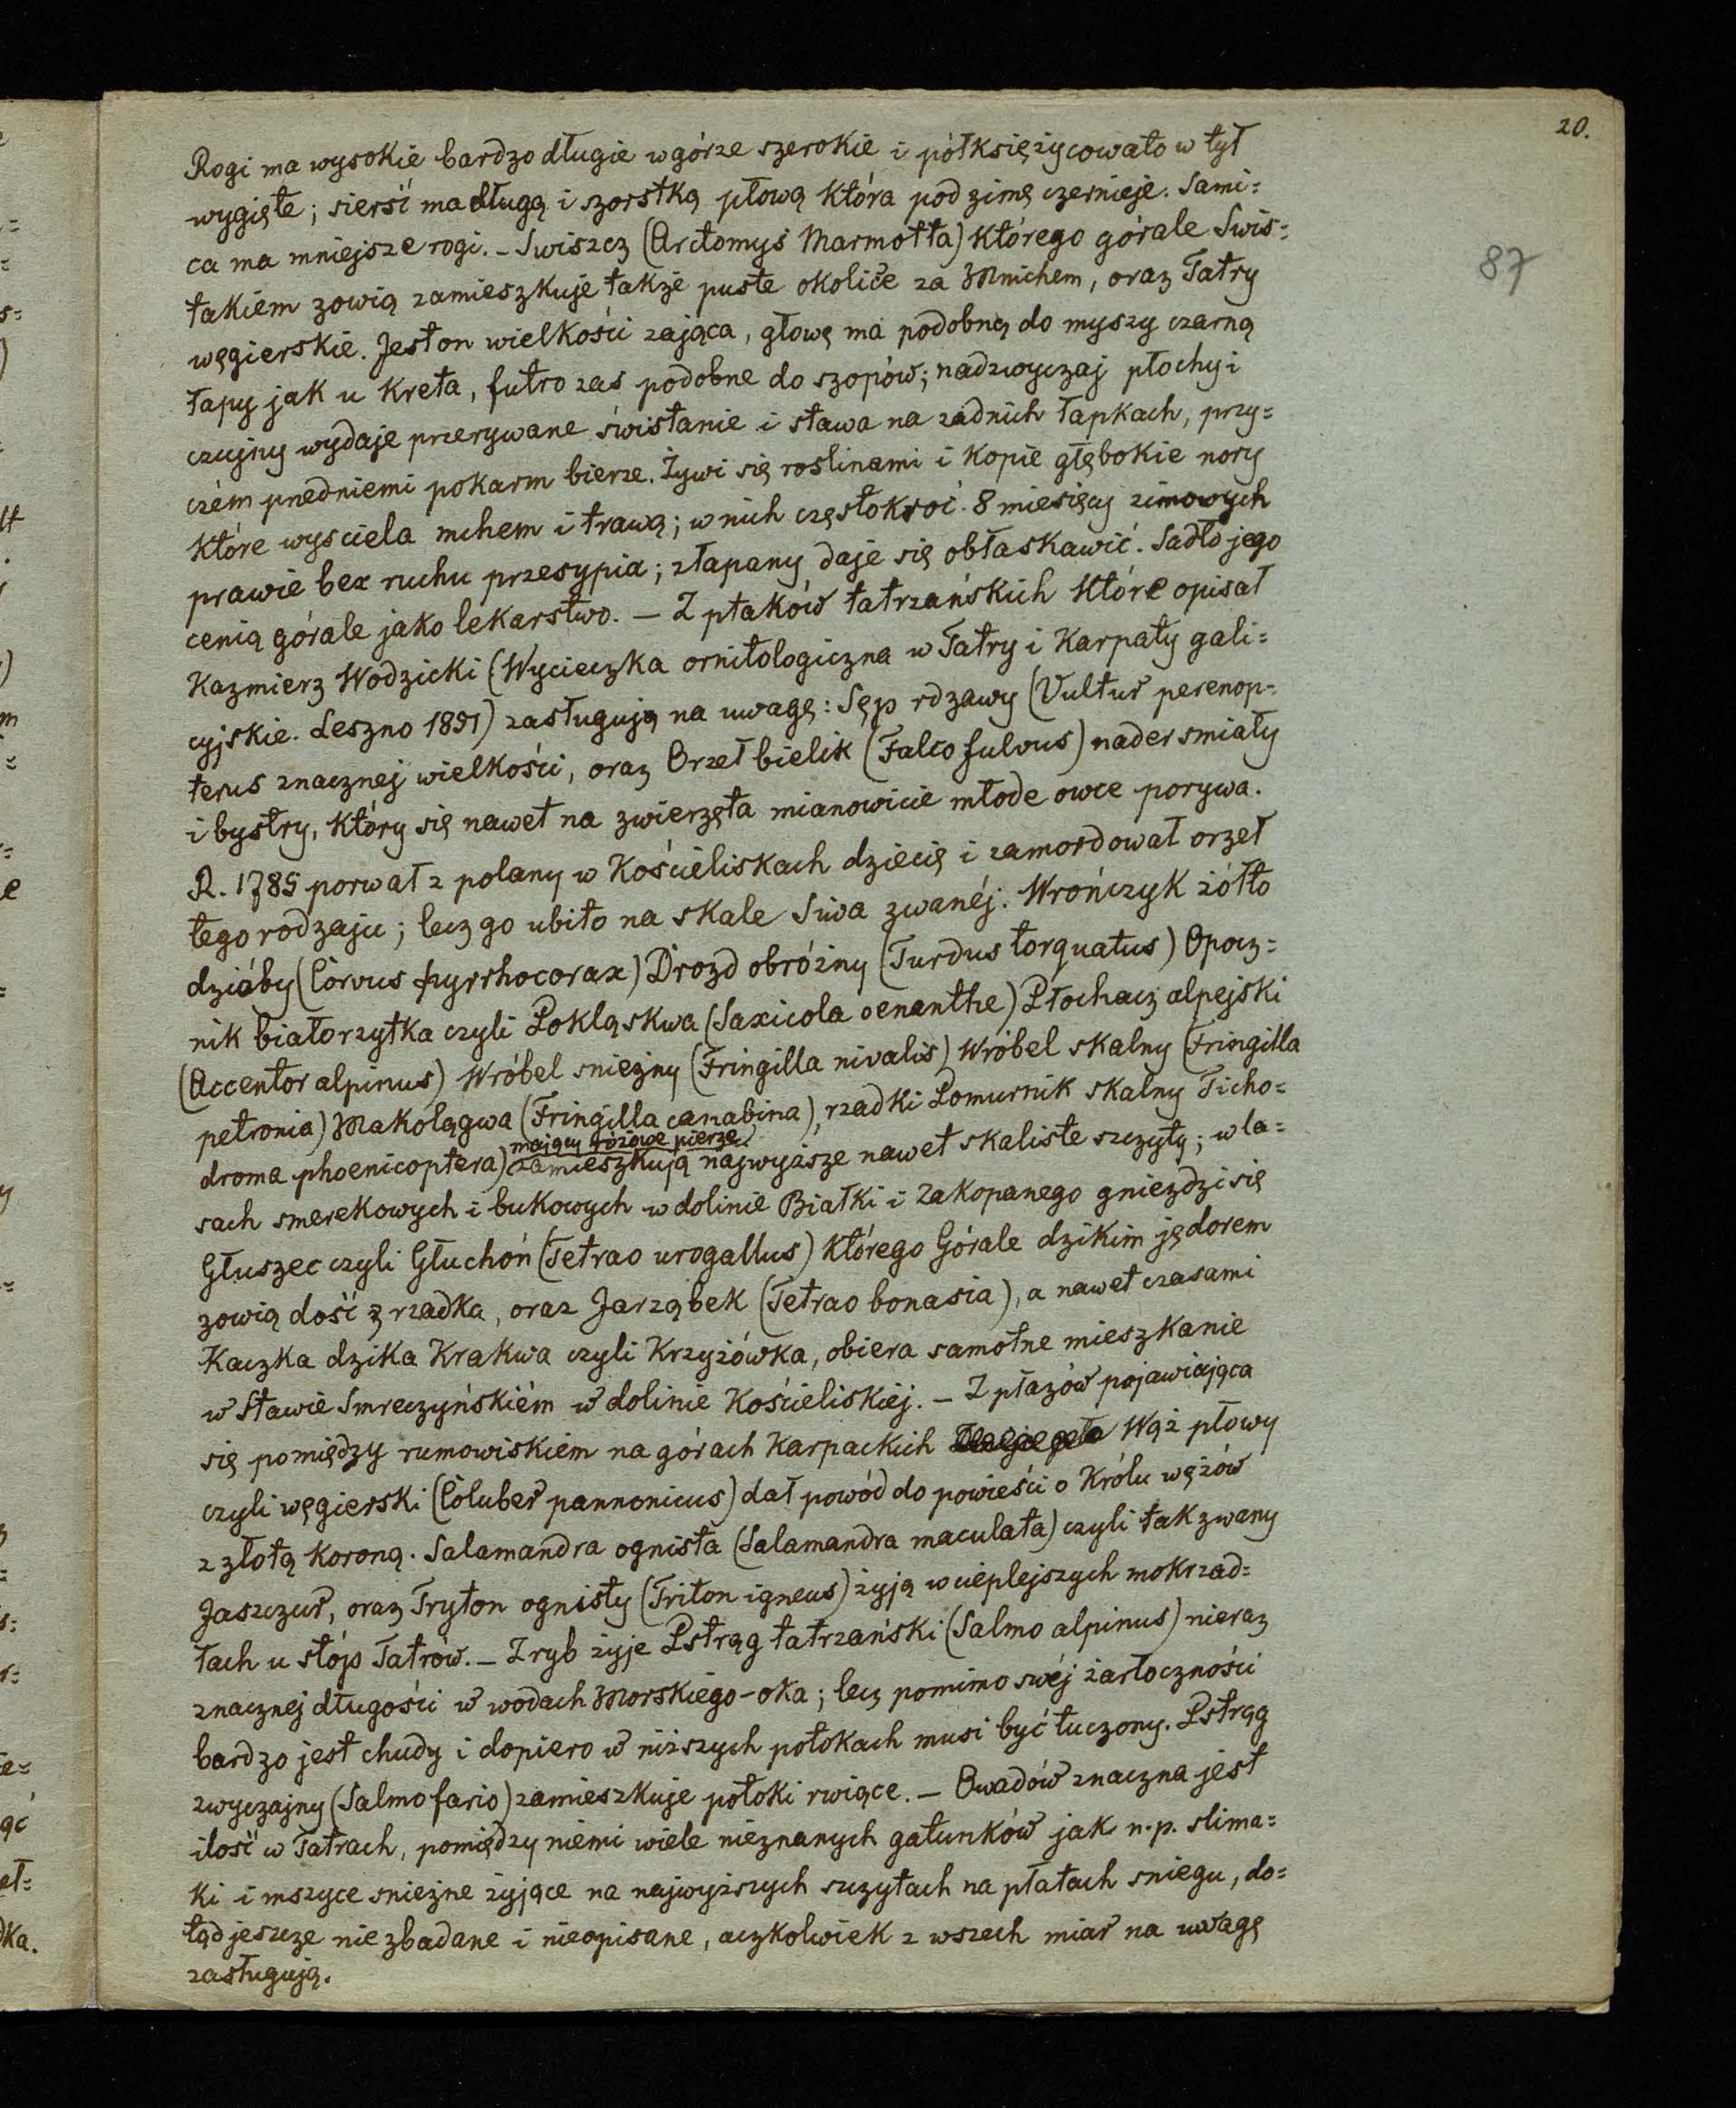 20.
87
Rogi ma wysokie bardzo długie w górze szerokie i półksiężycowato w tył
wygięte; sierść ma długą i szorstką płową która pod zimę czernieje. Sami=
ca ma mniejsze rogi. – Swiszcz (Arctomys Marmotta) którego górale Swis=
takiem zowią zamieszkuje także puste okolice za Mnichem, oraz Tatry
węgierskie. Jest on wielkości zająca, głowę ma podobną do myszy czarną
łapy jak u kreta, futro zas podobne do szopów; nadzwyczaj płochy i
czujny wydaje przerywane świstanie i stawa na zadnich łapkach, przy=
czém przedniemi pokarm bierze. Żywi się roslinami i kopie głębokie nory
które wysciela mchem i trawą; w nich częstokroć 8 miesięcy zimowych
prawie bez ruchu przesypia; złapany daje się obłaskawić. Sadło jego
cenią górale jako lekarstwo. – Z ptaków tatrzańskich które opisał
Kazmierz Wodzicki (Wycieczka ornitologiczna w Tatry i Karpaty gali=
cyjskie. Leszno 1851) zasługują na uwagę: Sęp rdzawy (Vultur perenop=
terus znacznej wielkości, oraz Orzeł bielik (Falco fulvus) nader smiały
i bystry, który się nawet na zwierzęta mianowicie młode owce porywa.
R. 1785 porwał z polany w Kościeliskach dziecię i zamordował orzeł
tego rodzaju; lecz go ubito na skale Siwa zwanéj. Wrończyk żółto
dzióby (Corvus pyrrhocorax) Drozd obróżny (Turdus torquatus) Opocz=
nik białorzytka czyli Pokląskwa (Saxicola oenanthe) Płochacz alpejski
(Accentor alpinus) Wróbel snieżny (Fringilla nivalis) Wróbel skalny (Fringilla
petronia) Makolągwa (Fringilla canabina), rzadki Pomurnik skalny Ticho=
mający różowe pierze
droma phoenicoptera) zamieszkują najwyższe nawet skaliste szczyty; w la=
sach smerekowych i bukowych w dolinie Białki i Zakopanego gnieździ się
Głuszec czyli Głuchoń (Tetrao urogallus) którego Górale dzikim jędorem
zowią dość z rzadka, oraz Jarząbek (Tetrao bonasia), a nawet czasami
Kaczka dzika Krakwa czyli Krzyżówka, obiera samotne mieszkanie
w Stawie Smreczyńskiém w dolinie Kościeliskiej. – Z płazów pojawiająca
się pomiędzy rumowiskiem na górach Karpackich Wąż płowy
czyli węgierski (Coluber pannonicus) dał powód do powieści o Królu wężów
z złotą koroną. Salamandra ognista (Salamandra maculata) czyli tak zwany
Jaszczur, oraz Tryton ognisty (Triton igneus) żyją w cieplejszych mokrzad=
łach u stóp Tatrów. – Z ryb żyje Pstrąg tatrzański (Salmo alpinus) nieraz
znacznej długości w wodach Morskiego-oka; lecz pomimo swéj żarłoczności
bardzo jest chudy i dopiero w niższych potokach musi być tuczony. Pstrąg
zwyczajny (Salmo fario) zamieszkuje potoki rwiące. – Owadów znaczna jest
ilość w Tatrach, pomiędzy niemi wiele nieznanych gatunków jak n.p. slima=
ki i mszyce snieżne żyjące na najwyższych szczytach na płatach sniegu, do=
tąd jeszcze nie zbadane i nieopisane, aczkolwiek z wszech miar na uwagę
zasługują.